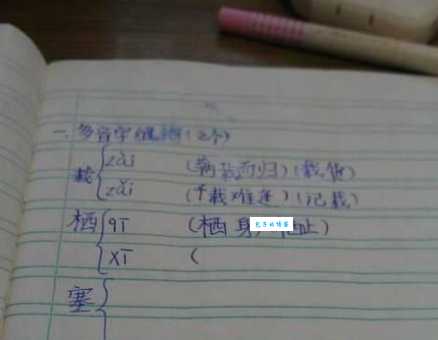 一、多音字组词（2个）
载 { zài （满载而归）（载物）
zǎi （千载难逢）（记载）
栖 { qī （栖身）（ 止）
xī （
塞 {